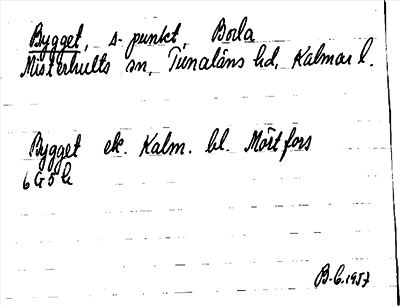 Bygget, s. punkt, Borla
Misterhults sn, Tunaläns hd, Kalmar l.
Bygget ek. Kalm. bl. Mörtfors
6 G 5 h
B-C. 1957